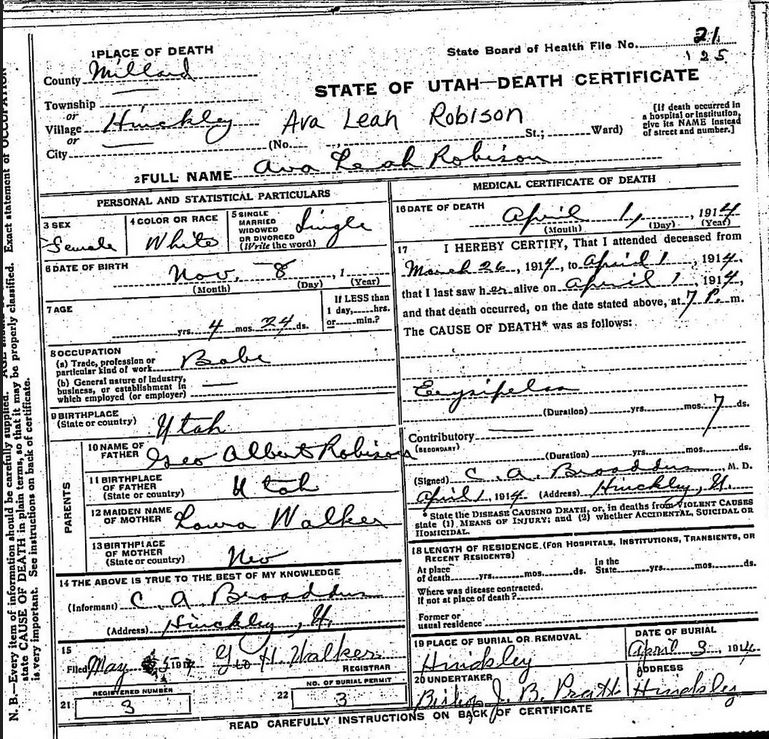 1 PLACE OF DEATH
State Board of Health File No. 21
125
County Millard
STATE OF UTAH—DEATH CERTIFICATE
Township
or
Village Hinckley
or
City
(No. St.; Ward)
Ava Leah Robison
[If death occurred in
a hospital or institution,
give its NAME instead
of street and number.]
2 FULL NAME Ava Leah Robison
PERSONAL AND STATISTICAL PARTICULARS
3 SEX
Female
4 COLOR OR RACE
White
5 SINGLE
MARRIED
WIDOWED
OR DIVORCED
(Write the word)
Single
6 DATE OF BIRTH
Nov, 8, 1
(Month) (Day) (Year)
7 AGE
yrs. 4 mos. 24 ds.
If LESS than
1 day, hrs.
or min.?
8 OCCUPATION
(a) Trade, profession or
particular kind of work Babe
(b) General nature of industry,
business, or establishment in
which employed (or employer)
9 BIRTHPLACE
(State or country) Utah
PARENTS
10 NAME OF
FATHER Geo Albert Robison
11 BIRTHPLACE
OF FATHER
(State or country) Utah
12 MAIDEN NAME
OF MOTHER Walker
13 BIRTHPLACE
OF MOTHER
(State or country)
14 THE ABOVE IS TRUE TO THE BEST OF MY KNOWLEDGE
(Informant) C. A. Broaddus
(Address) Hinckley, U.
15
Filed May 5 1914 Geo H. Walker
REGISTRAR
21 REGISTERED NUMBER
3
22 NO. OF BURIAL PERMIT
3
MEDICAL CERTIFICATE OF DEATH
16 DATE OF DEATH
April 1, 1914
(Month) (Day) (Year)
17 I HEREBY CERTIFY, That I attended deceased from
March 26, 1914, to April 1, 1914,
that I last saw her alive on April 1, 1914,
and that death occurred, on the date stated above, at 7 P. m.
The CAUSE OF DEATH* was as follows:
Erysipelas
(Duration) yrs. mos. 7 ds.
Contributory
(SECONDARY)
(Duration) yrs. mos. ds.
(Signed) C. A. Broaddus, M. D.
April 1, 1914 (Address) Hinckley, U.
* State the DISEASE CAUSING DEATH, or, in deaths from VIOLENT CAUSES
state (1) MEANS OF INJURY; and (2) whether ACCIDENTAL, SUICIDAL OR
HOMICIDAL.
18 LENGTH OF RESIDENCE. (FOR HOSPITALS, INSTITUTIONS, TRANSIENTS, OR
RECENT RESIDENTS)
At place
of death yrs. mos. ds.
In the
State yrs. mos. ds.
Where was disease contracted.
if not at place of death?
Former or
usual residence
19 PLACE OF BURIAL OR REMOVAL
Hinckley
DATE OF BURIAL
April 3, 1914
20 UNDERTAKER
Bishop J. B. Pratt
ADDRESS
Hinckley
READ CAREFULLY INSTRUCTIONS ON BACK OF CERTIFICATE
N. B.—Every item of information should be carefully supplied. Exact statement of OCCUPATION
state CAUSE OF DEATH in plain terms, so that it may be properly classified.
is very important. See instructions on back of certificate.